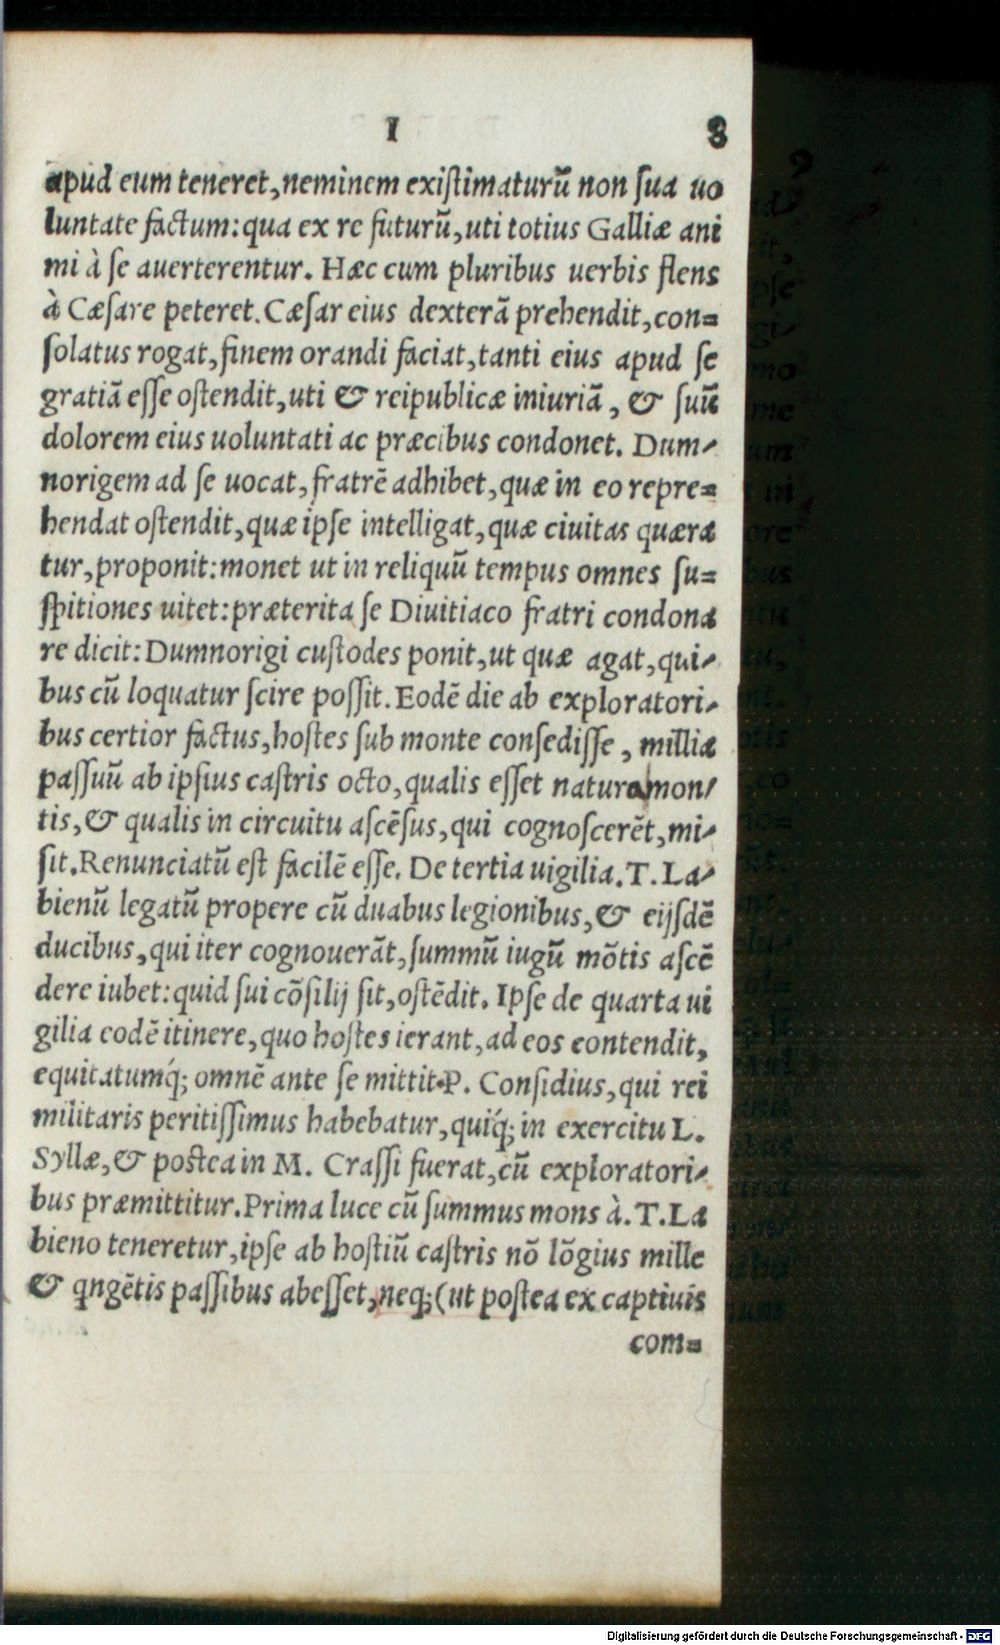 I 8
apud eum teneret,neminem exiſtimaturũ non ſua uo
luntate factum:qua ex re futurũ,uti totius Galliæ ani
mi à ſe auerterentur. Hæc cum pluribus uerbis flens
à Cæſare peteret.Cæſar eius dexterã prehendit,con=
ſolatus rogat,finem orandi faciat,tanti eius apud ſe
gratiã eſſe oſtendit,uti & reipublicæ iniuriã, & ſuũ
dolorem eius uoluntati ac præcibus condonet. Dum-
norigem ad ſe uocat,fratrẽ adhibet,quæ in eo repre=
hendat oſtendit,quæ ipſe intelligat,quæ ciuitas quæra
tur,proponit:monet ut in reliquũ tempus omnes ſu=
ſpitiones uitet:præterita ſe Diuitiaco fratri condona
re dicit:Dumnorigi cuſtodes ponit,ut quæ agat,qui-
bus cũ loquatur ſcire poſſit.Eodẽ die ab exploratori-
bus certior factus,hoſtes ſub monte conſediſſe, millia
paſſuũ ab ipſius caſtris octo,qualis eſſet natura mon-
tis,& qualis in circuitu aſcẽſus,qui cognoſcerẽt,mi-
ſit.Renunciatũ eſt facilẽ eſſe. De tertia uigilia.T.La-
bienũ legatũ propere cũ duabus legionibus,& eijſdẽ
ducibus,qui iter cognouerãt,ſummũ iugũ mõtis aſcẽ
dere iubet:quid ſui cõſilij ſit,oſtẽdit. Ipſe de quarta ui
gilia eodẽ itinere,quo hoſtes ierant,ad eos contendit,
equitatumq́; omnẽ ante ſe mittit.P. Conſidius,qui rei
militaris peritiſſimus habebatur,quiq́; in exercitu L.
Syllæ,& poſtea in M. Craſſi fuerat,cũ exploratori-
bus præmittitur.Prima luce cũ ſummus mons à.T.La
bieno teneretur,ipſe ab hoſtiũ caſtris nõ lõgius mille
& qngẽtis paſſibus abeſſet,neq;(ut poſtea ex captiuis
com=
Digitalisierung gefördert durch die Deutsche Forschungsgemeinschaft - DFG